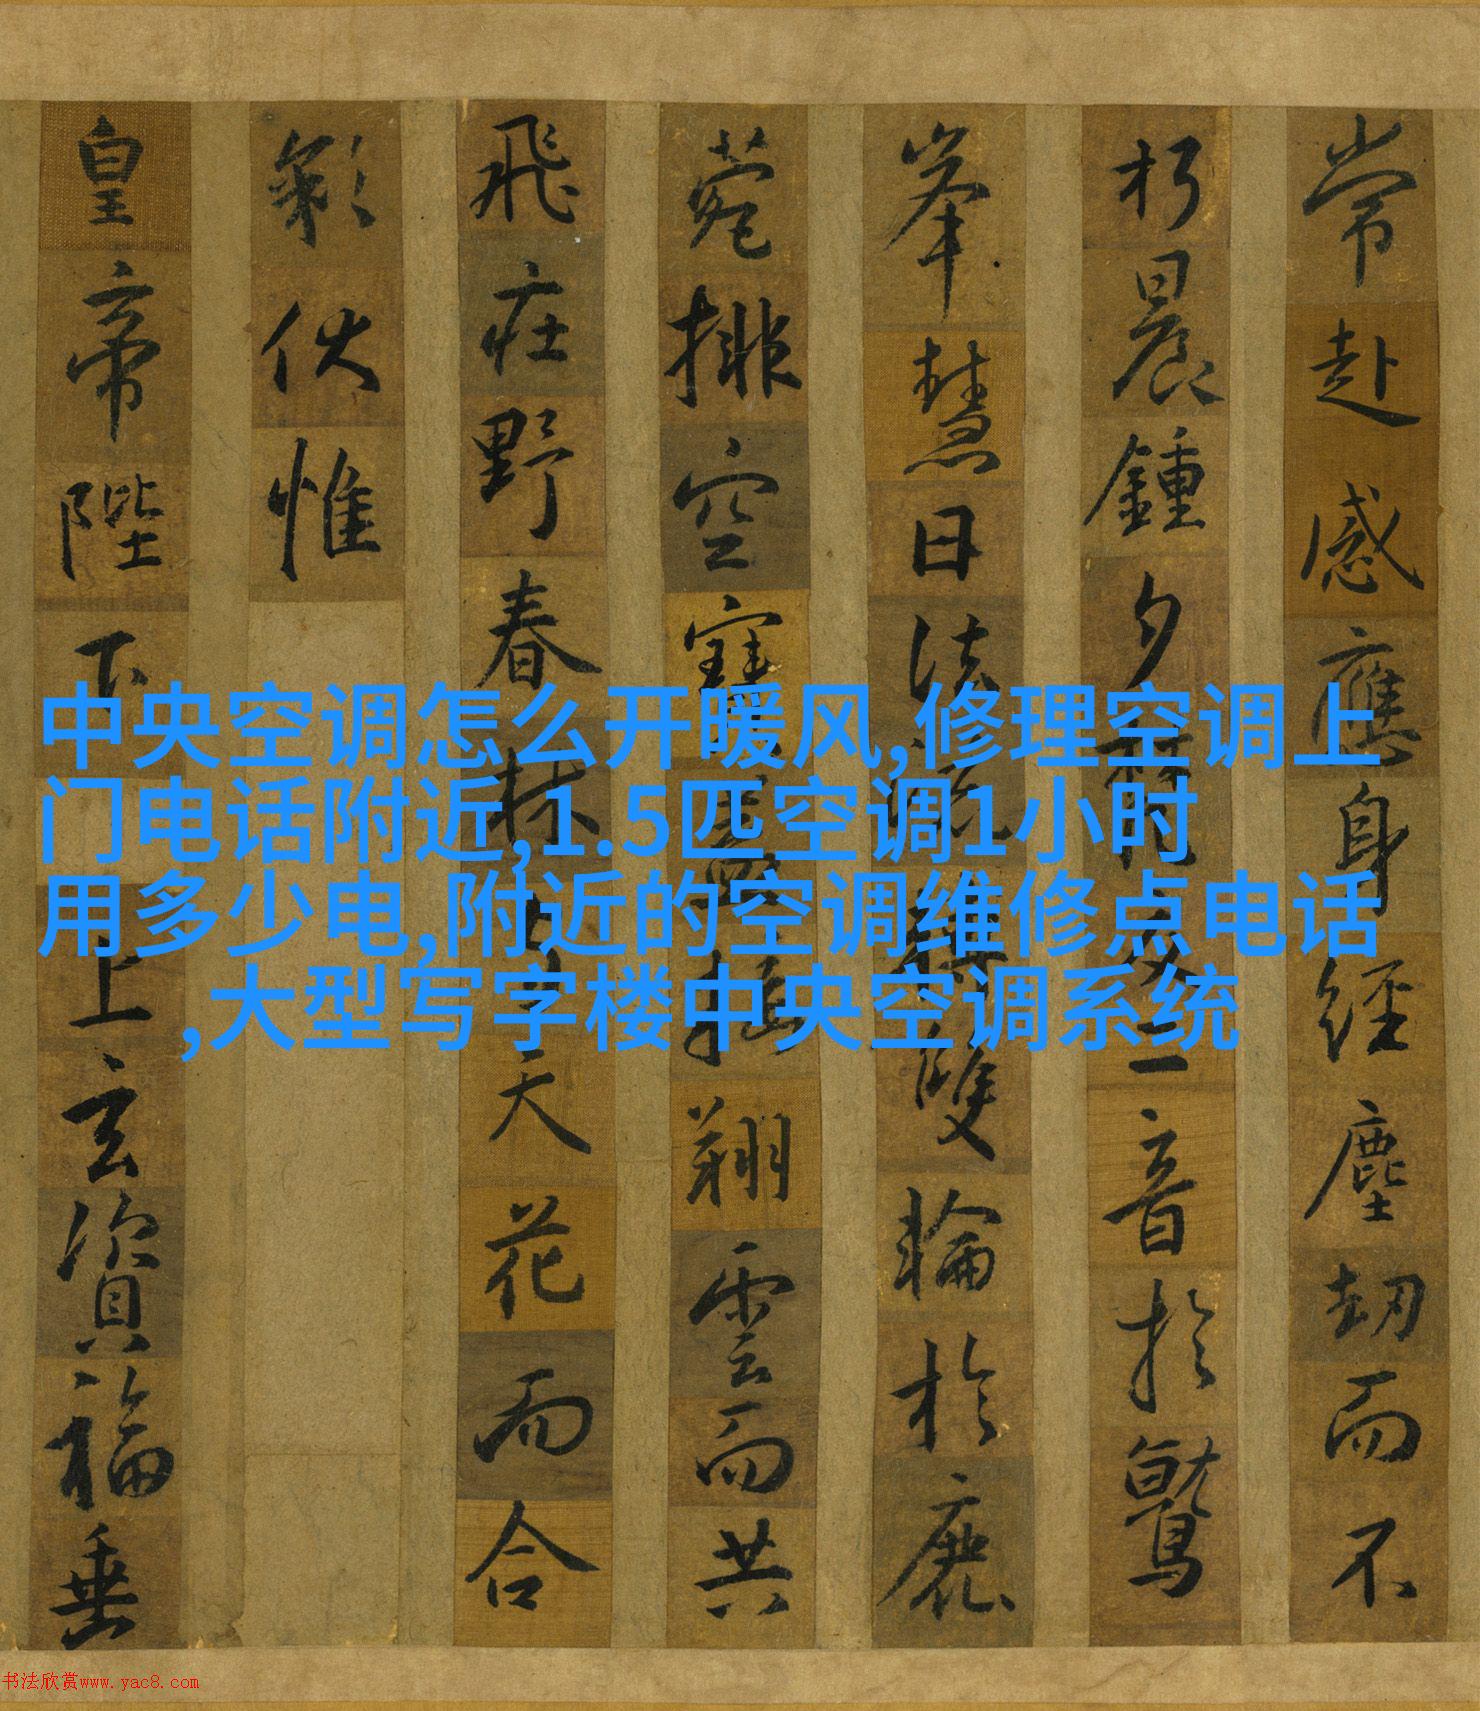 常赴感應身經塵劫而不
朽晨鍾夕梵交二音於鷲
峯慧日法流轉雙輪於鹿
菀排空寶蓋接翔雲而共
飛莊野春林與天花而合
彩伏惟
皇帝陛下上玄資福垂
中央空调怎么开暖风,修理空调上
门电话附近,1.5匹空调1小时
用多少电,附近的空调维修点电话
,大型写字楼中央空调系统
书法欣赏www.yac8.com